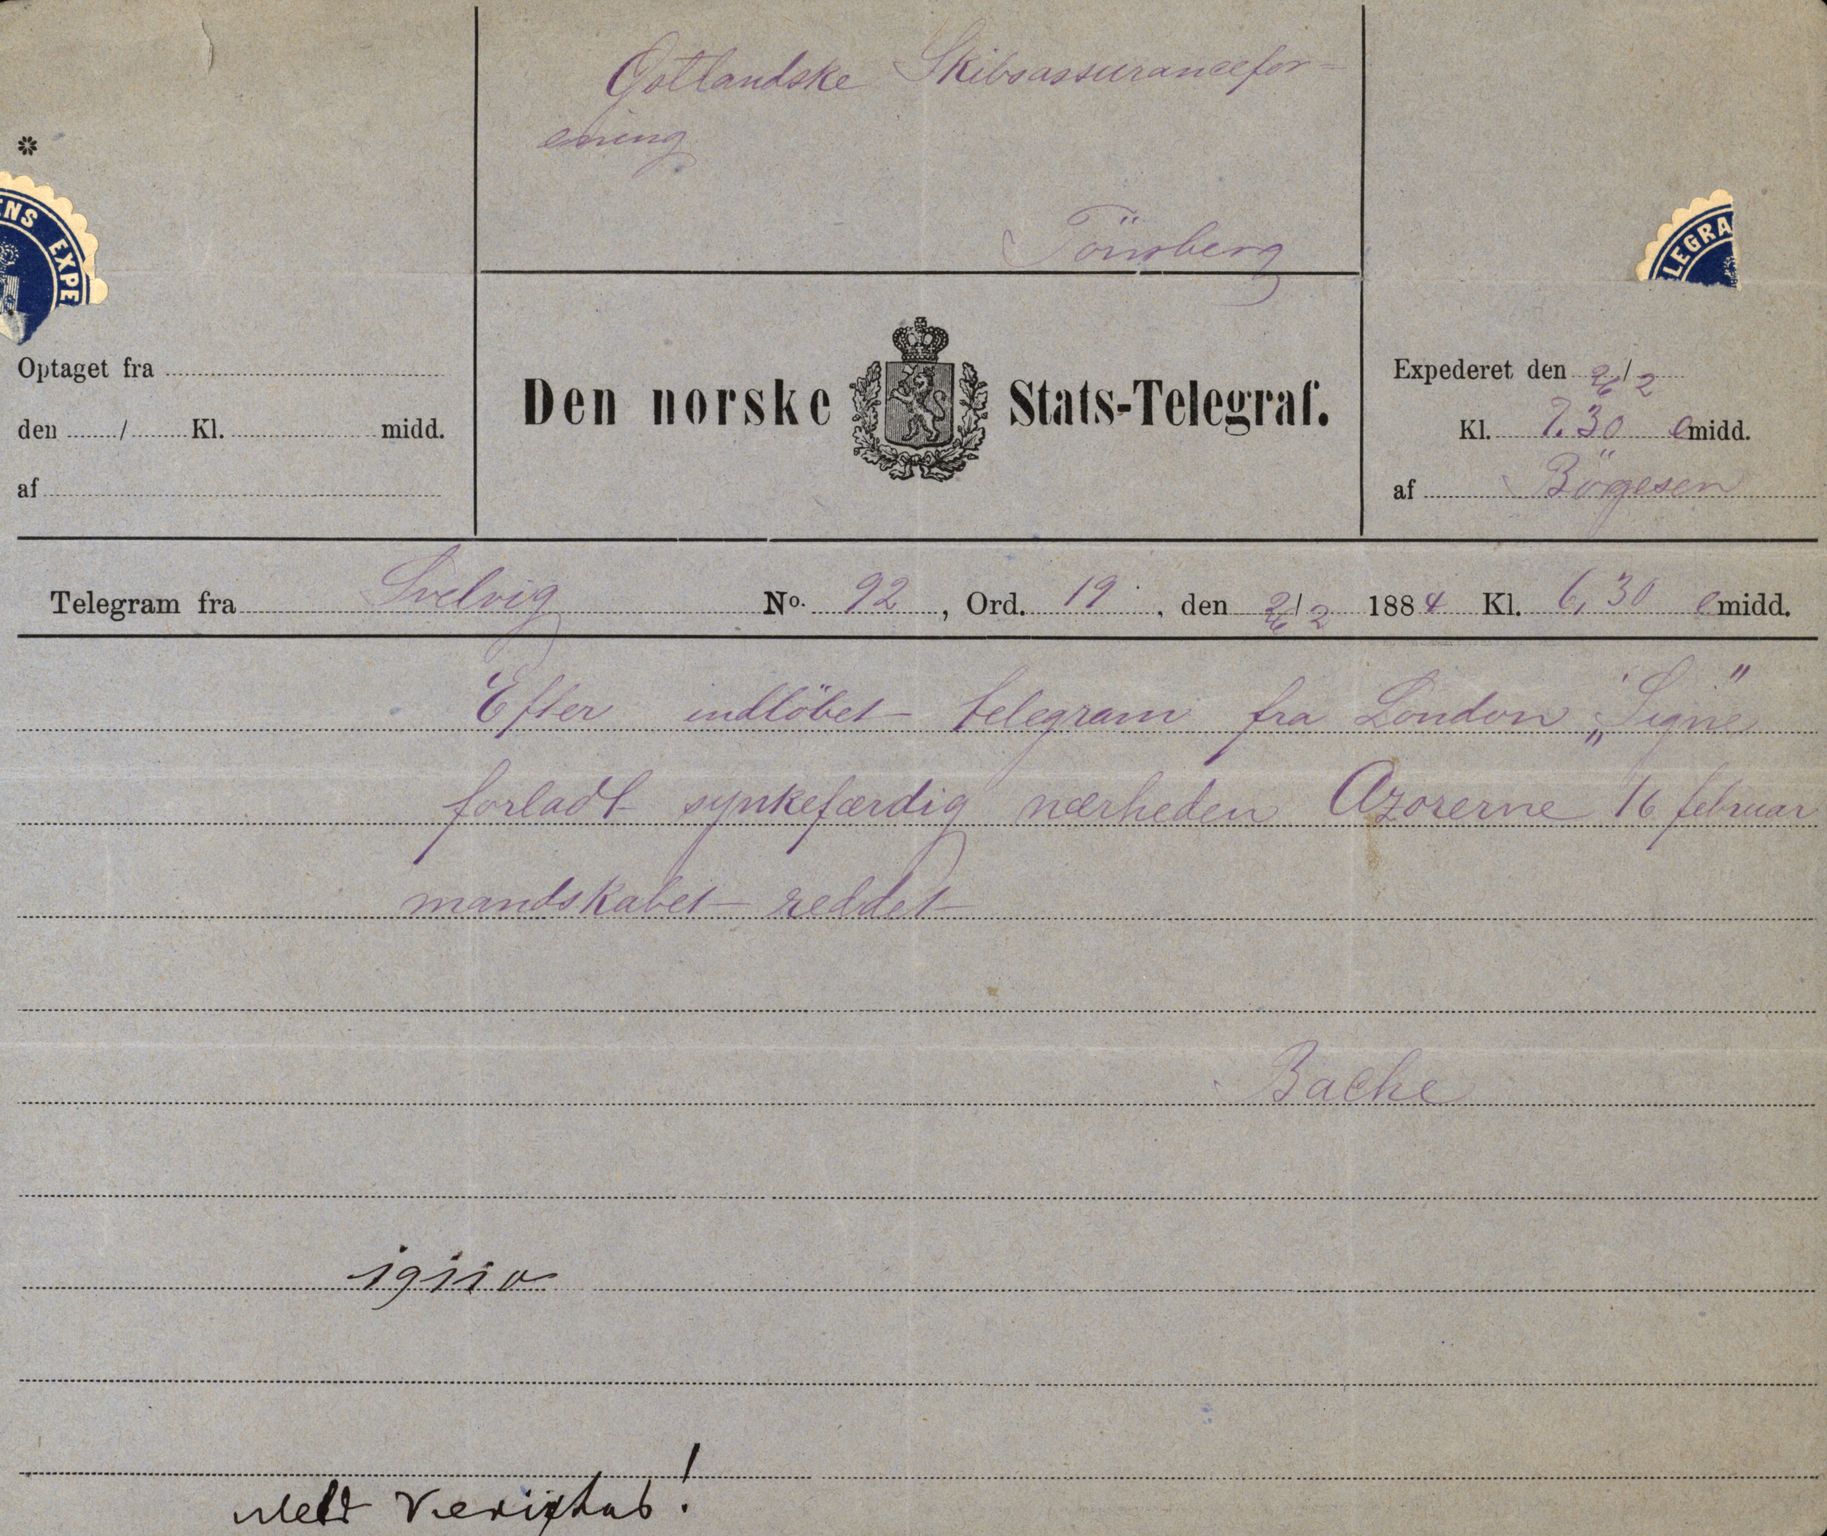 Østlandske Skibsassurancefor-
ening
Tönsberg
ENS EXPE
LEGRA
Optaget fra
den / Kl. midd.
af
Den norske Stats-Telegraf.
Expederet den 26/2
Kl. 7.30 emidd.
af Börgesen
Telegram fra Svelvig No. 92, Ord. 19, den 26/2 1884 Kl. 6,30 emidd.
Efter indlöbet telegram fra London „Signe"
forladt synkefærdig nærheden Azorerne 16 februar
mandskabet reddet
Bache
Meld